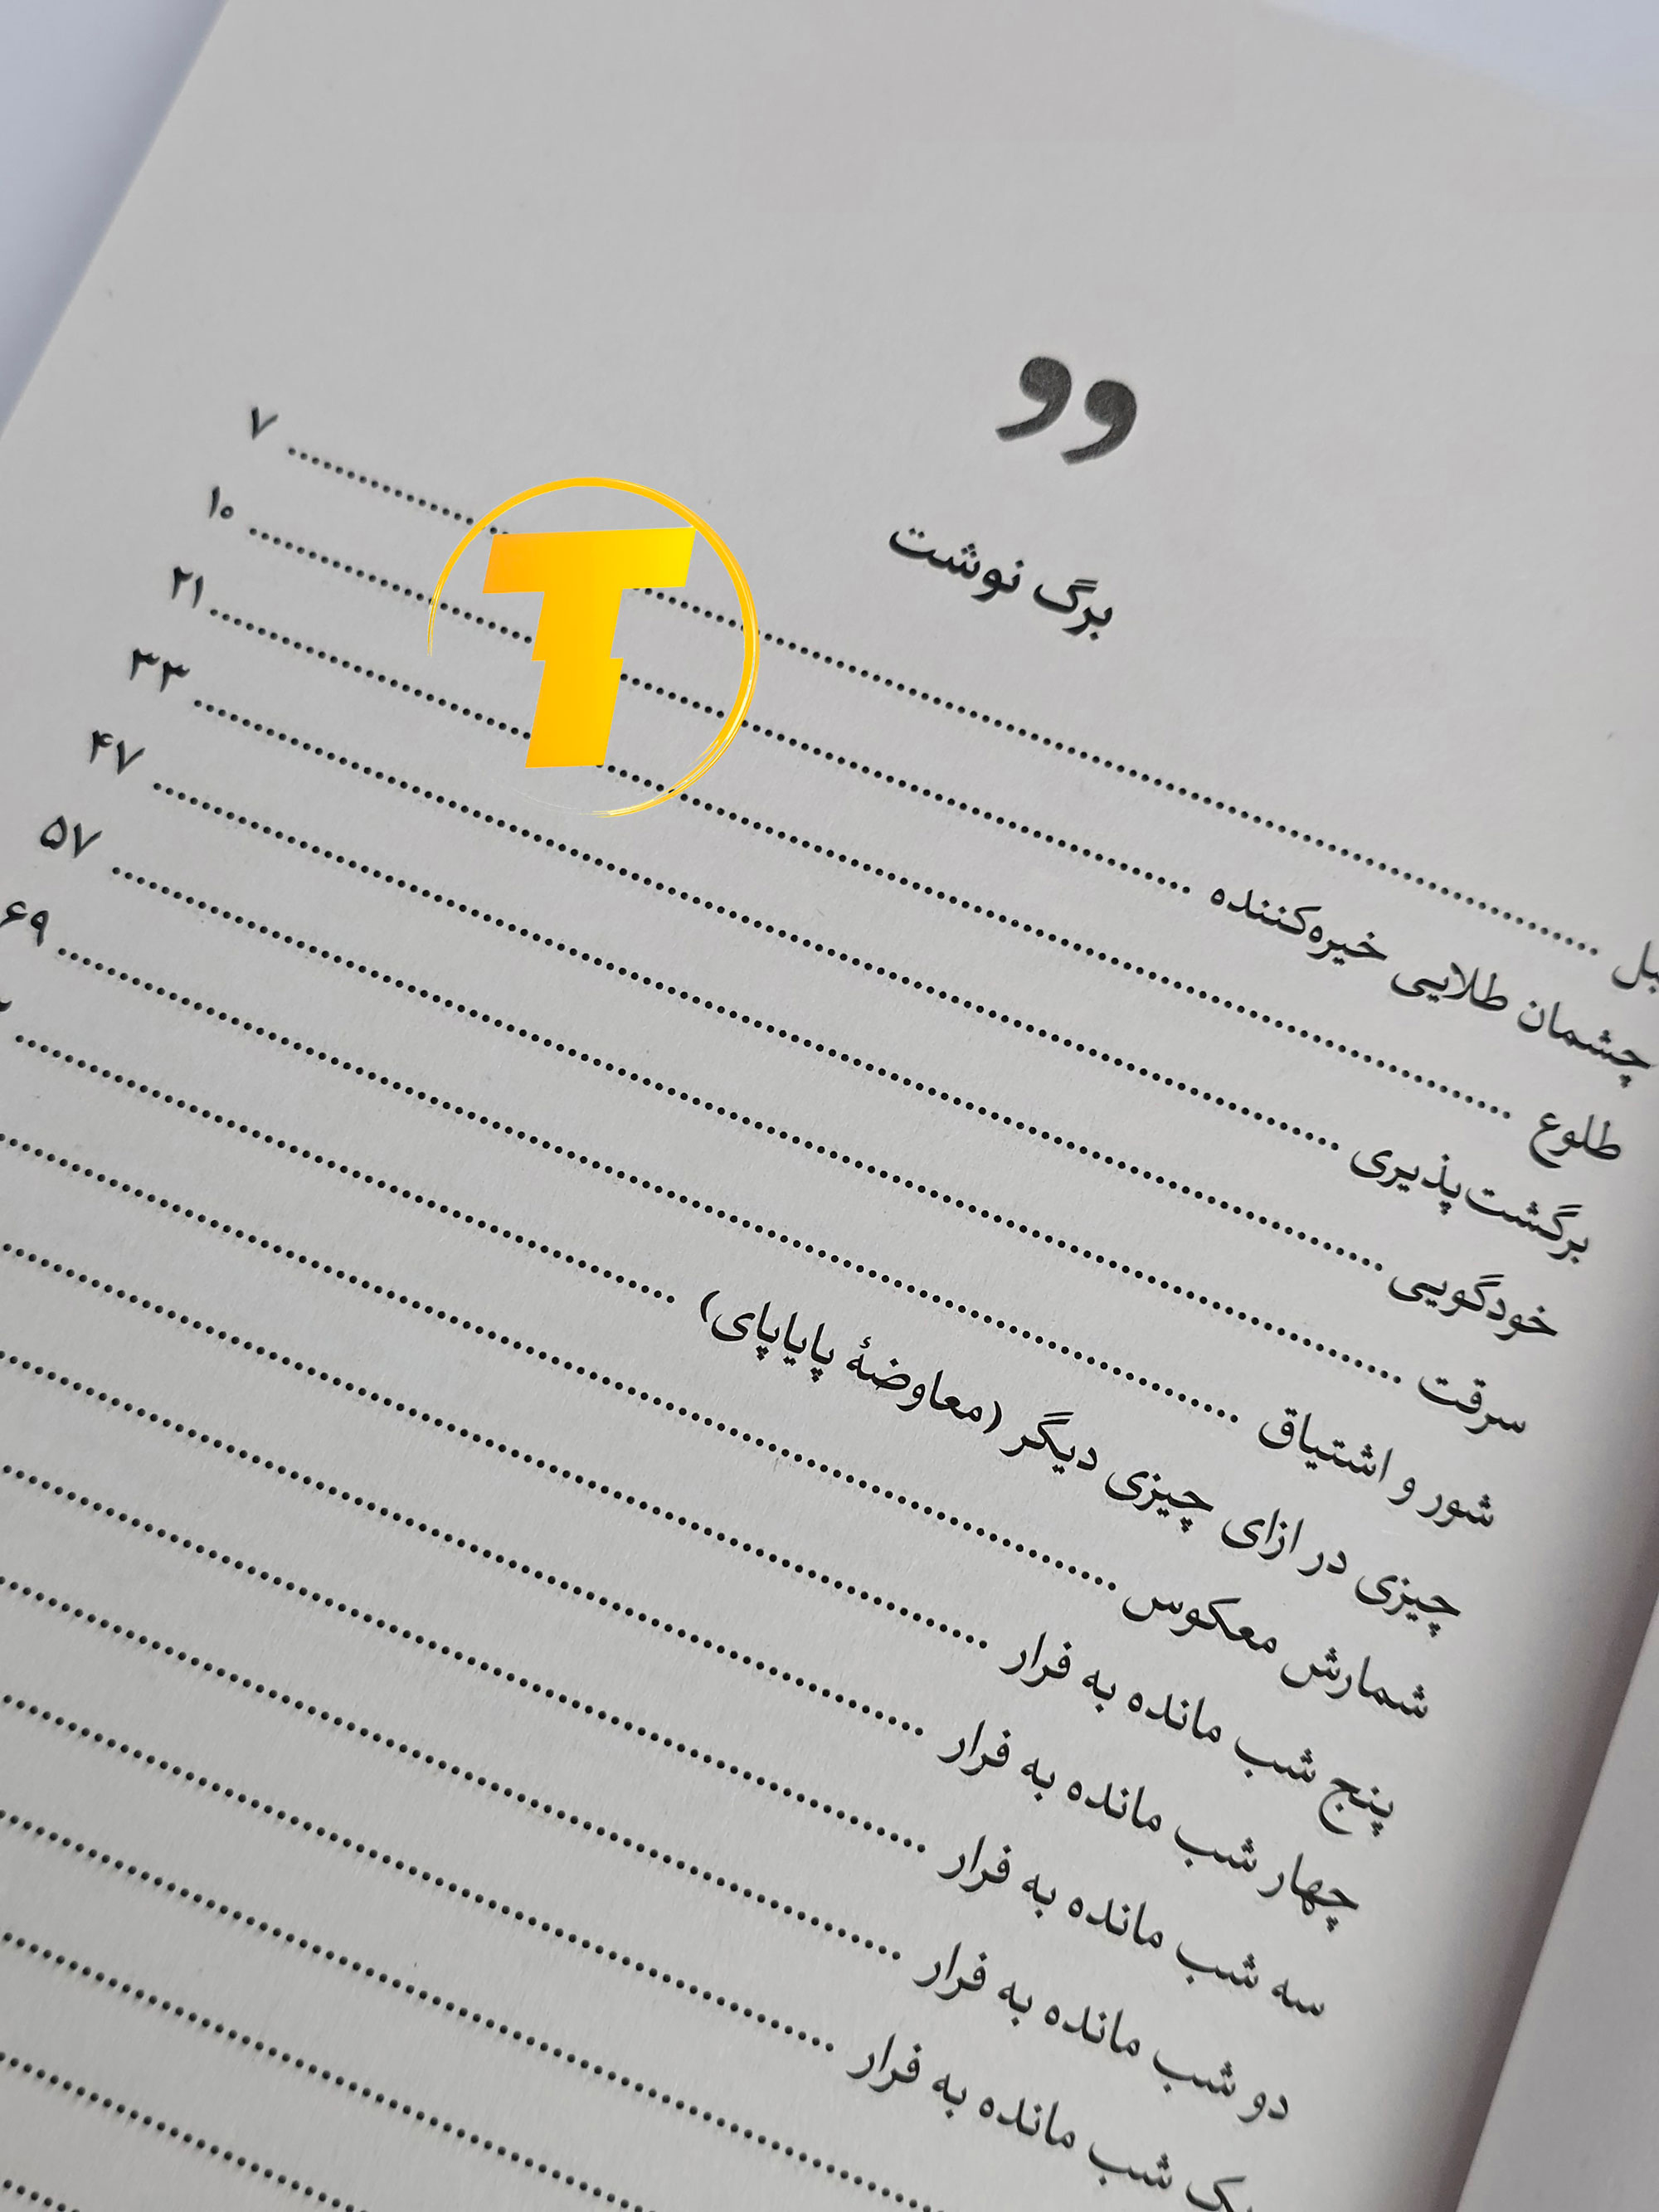 برگ نوشت
۷
چشمان طلایی خیره‌کننده ۱۰
طلوع ۲۱
برگشت‌پذیری ۳۳
خودگویی ۴۷
سرقت ۵۷
شور و اشتیاق ۶۹
چیزی در ازای چیزی دیگر (معاوضهٔ پایاپای)
شمارش معکوس
پنج شب مانده به فرار
چهار شب مانده به فرار
سه شب مانده به فرار
دو شب مانده به فرار
شب مانده به فرار
T